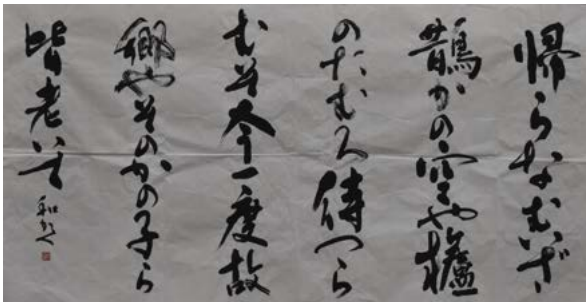 帰らなむいざ
鵲かの空や櫨
のたむろ待つら
むそ今一度故
郷やそのかの子ら
皆老いて